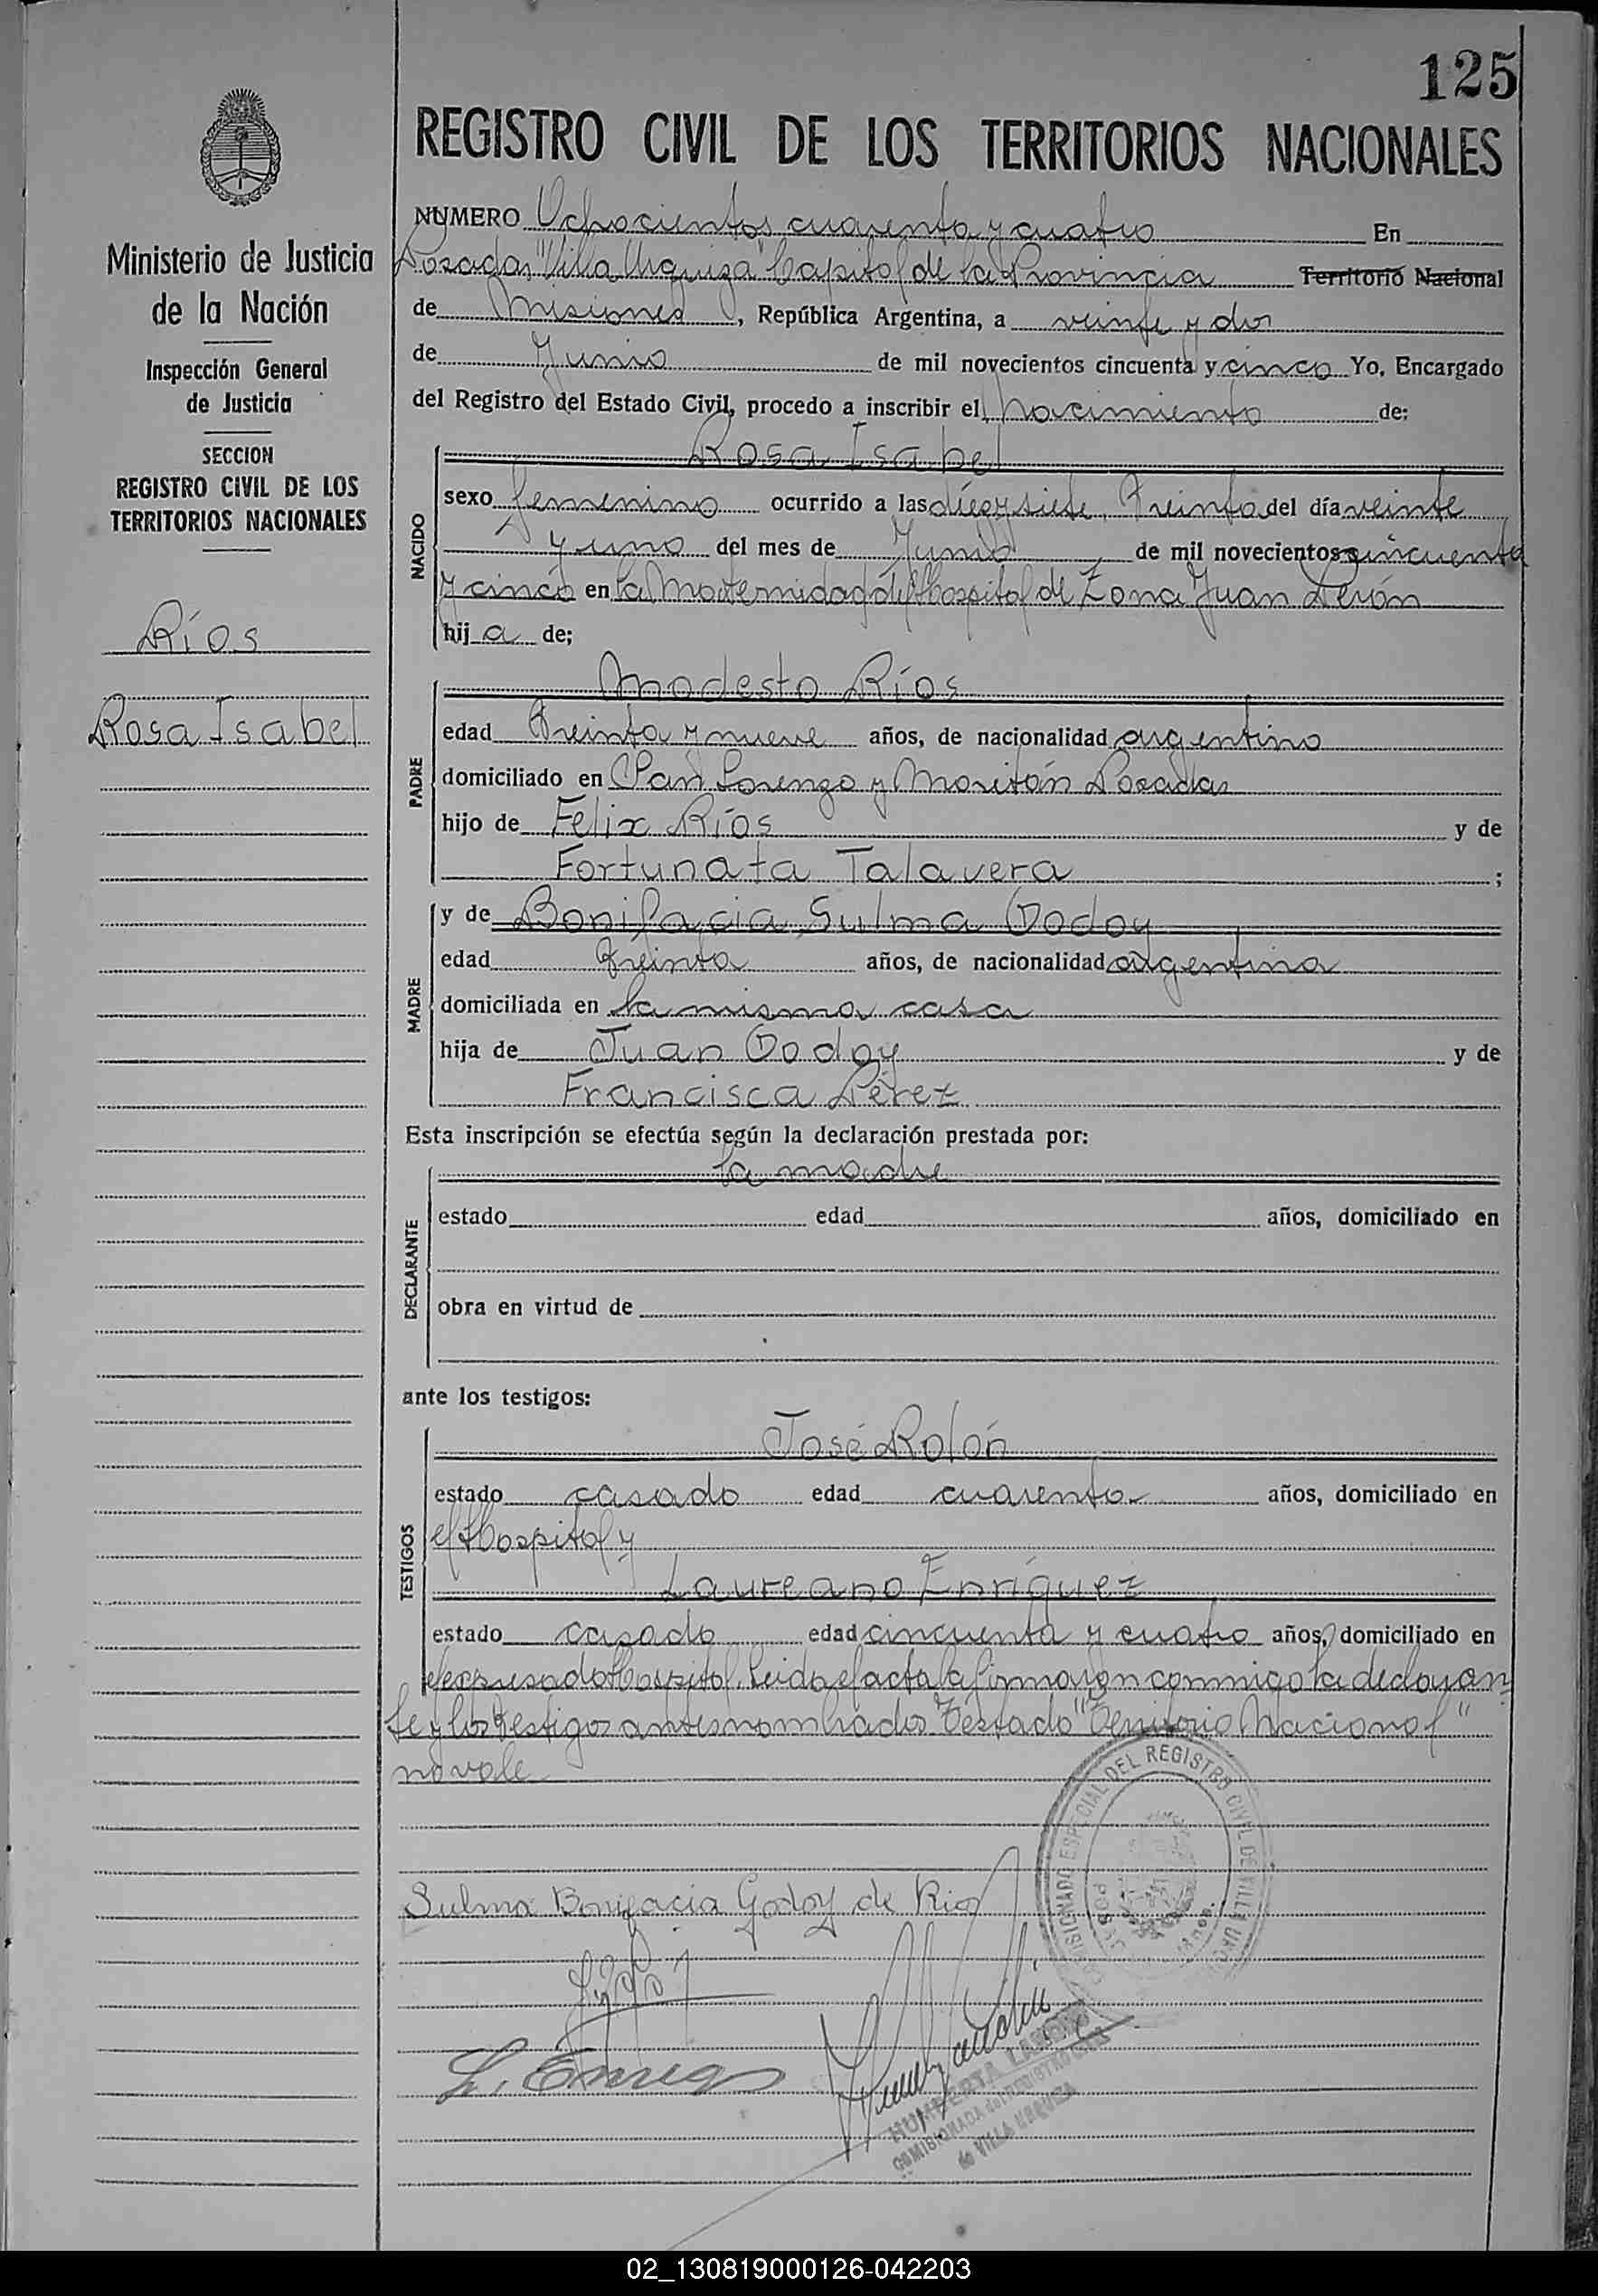 125
REGISTRO CIVIL DE LOS TERRITORIOS NACIONALES
Ministerio de Justicia
de la Nación
Inspección General
de Justicia
SECCION
REGISTRO CIVIL DE LOS
TERRITORIOS NACIONALES
Ríos
Rosa Isabel
NUMERO Ochocientos cuarenta y cuatro En
Posadas "Villa Urquiza" Capital de la Provincia Territorio Nacional
de Misiones, República Argentina, a veinte y dos
de Junio de mil novecientos cincuenta y cinco Yo, Encargado
del Registro del Estado Civil, procedo a inscribir el nacimiento de:
NACIDO
Rosa Isabel
sexo femenino ocurrido a las diez y siete, treinta del día veinte
y uno del mes de Junio de mil novecientos cincuenta
y cinco en la Maternidad del Hospital de Zona Juan Perón
hija de;
PADRE
Modesto Ríos
edad treinta y nueve años, de nacionalidad argentino
domiciliado en San Lorenzo y Posadas
hijo de Felix Ríos y de
Fortunata Talavera ;
MADRE
y de Bonifacia Sulma Godoy
edad treinta años, de nacionalidad argentina
domiciliada en la misma casa
hija de Juan Godoy y de
Francisca Pérez
Esta inscripción se efectúa según la declaración prestada por:
DECLARANTE
la madre
estado edad años, domiciliado en
obra en virtud de
ante los testigos:
TESTIGOS
José Rolón
estado casado edad cuarenta años, domiciliado en
el Hospital y
Laureano Enríquez
estado casado edad cincuenta y cuatro años, domiciliado en
el expresado Hospital. Leida el acta la firmaron conmigo la declaran
te y los testigos antes nombrados. Testado "Territorio Nacional"
no vale
Sulma Bonifacia Godoy de Rios
L. Enriq
COMISIONADO ESPECIAL DEL REGISTRO CIVIL DE VILLA URQ
HUMBERTA
COMISIONADA de REGISTRO CIVIL
de VILLA URQUIZA
02_130819000126-042203